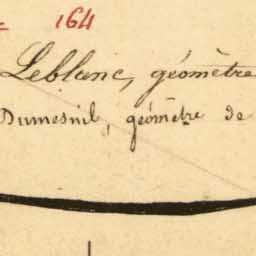 164
Leblanc, géomètre
Dumesnil, géomètre de